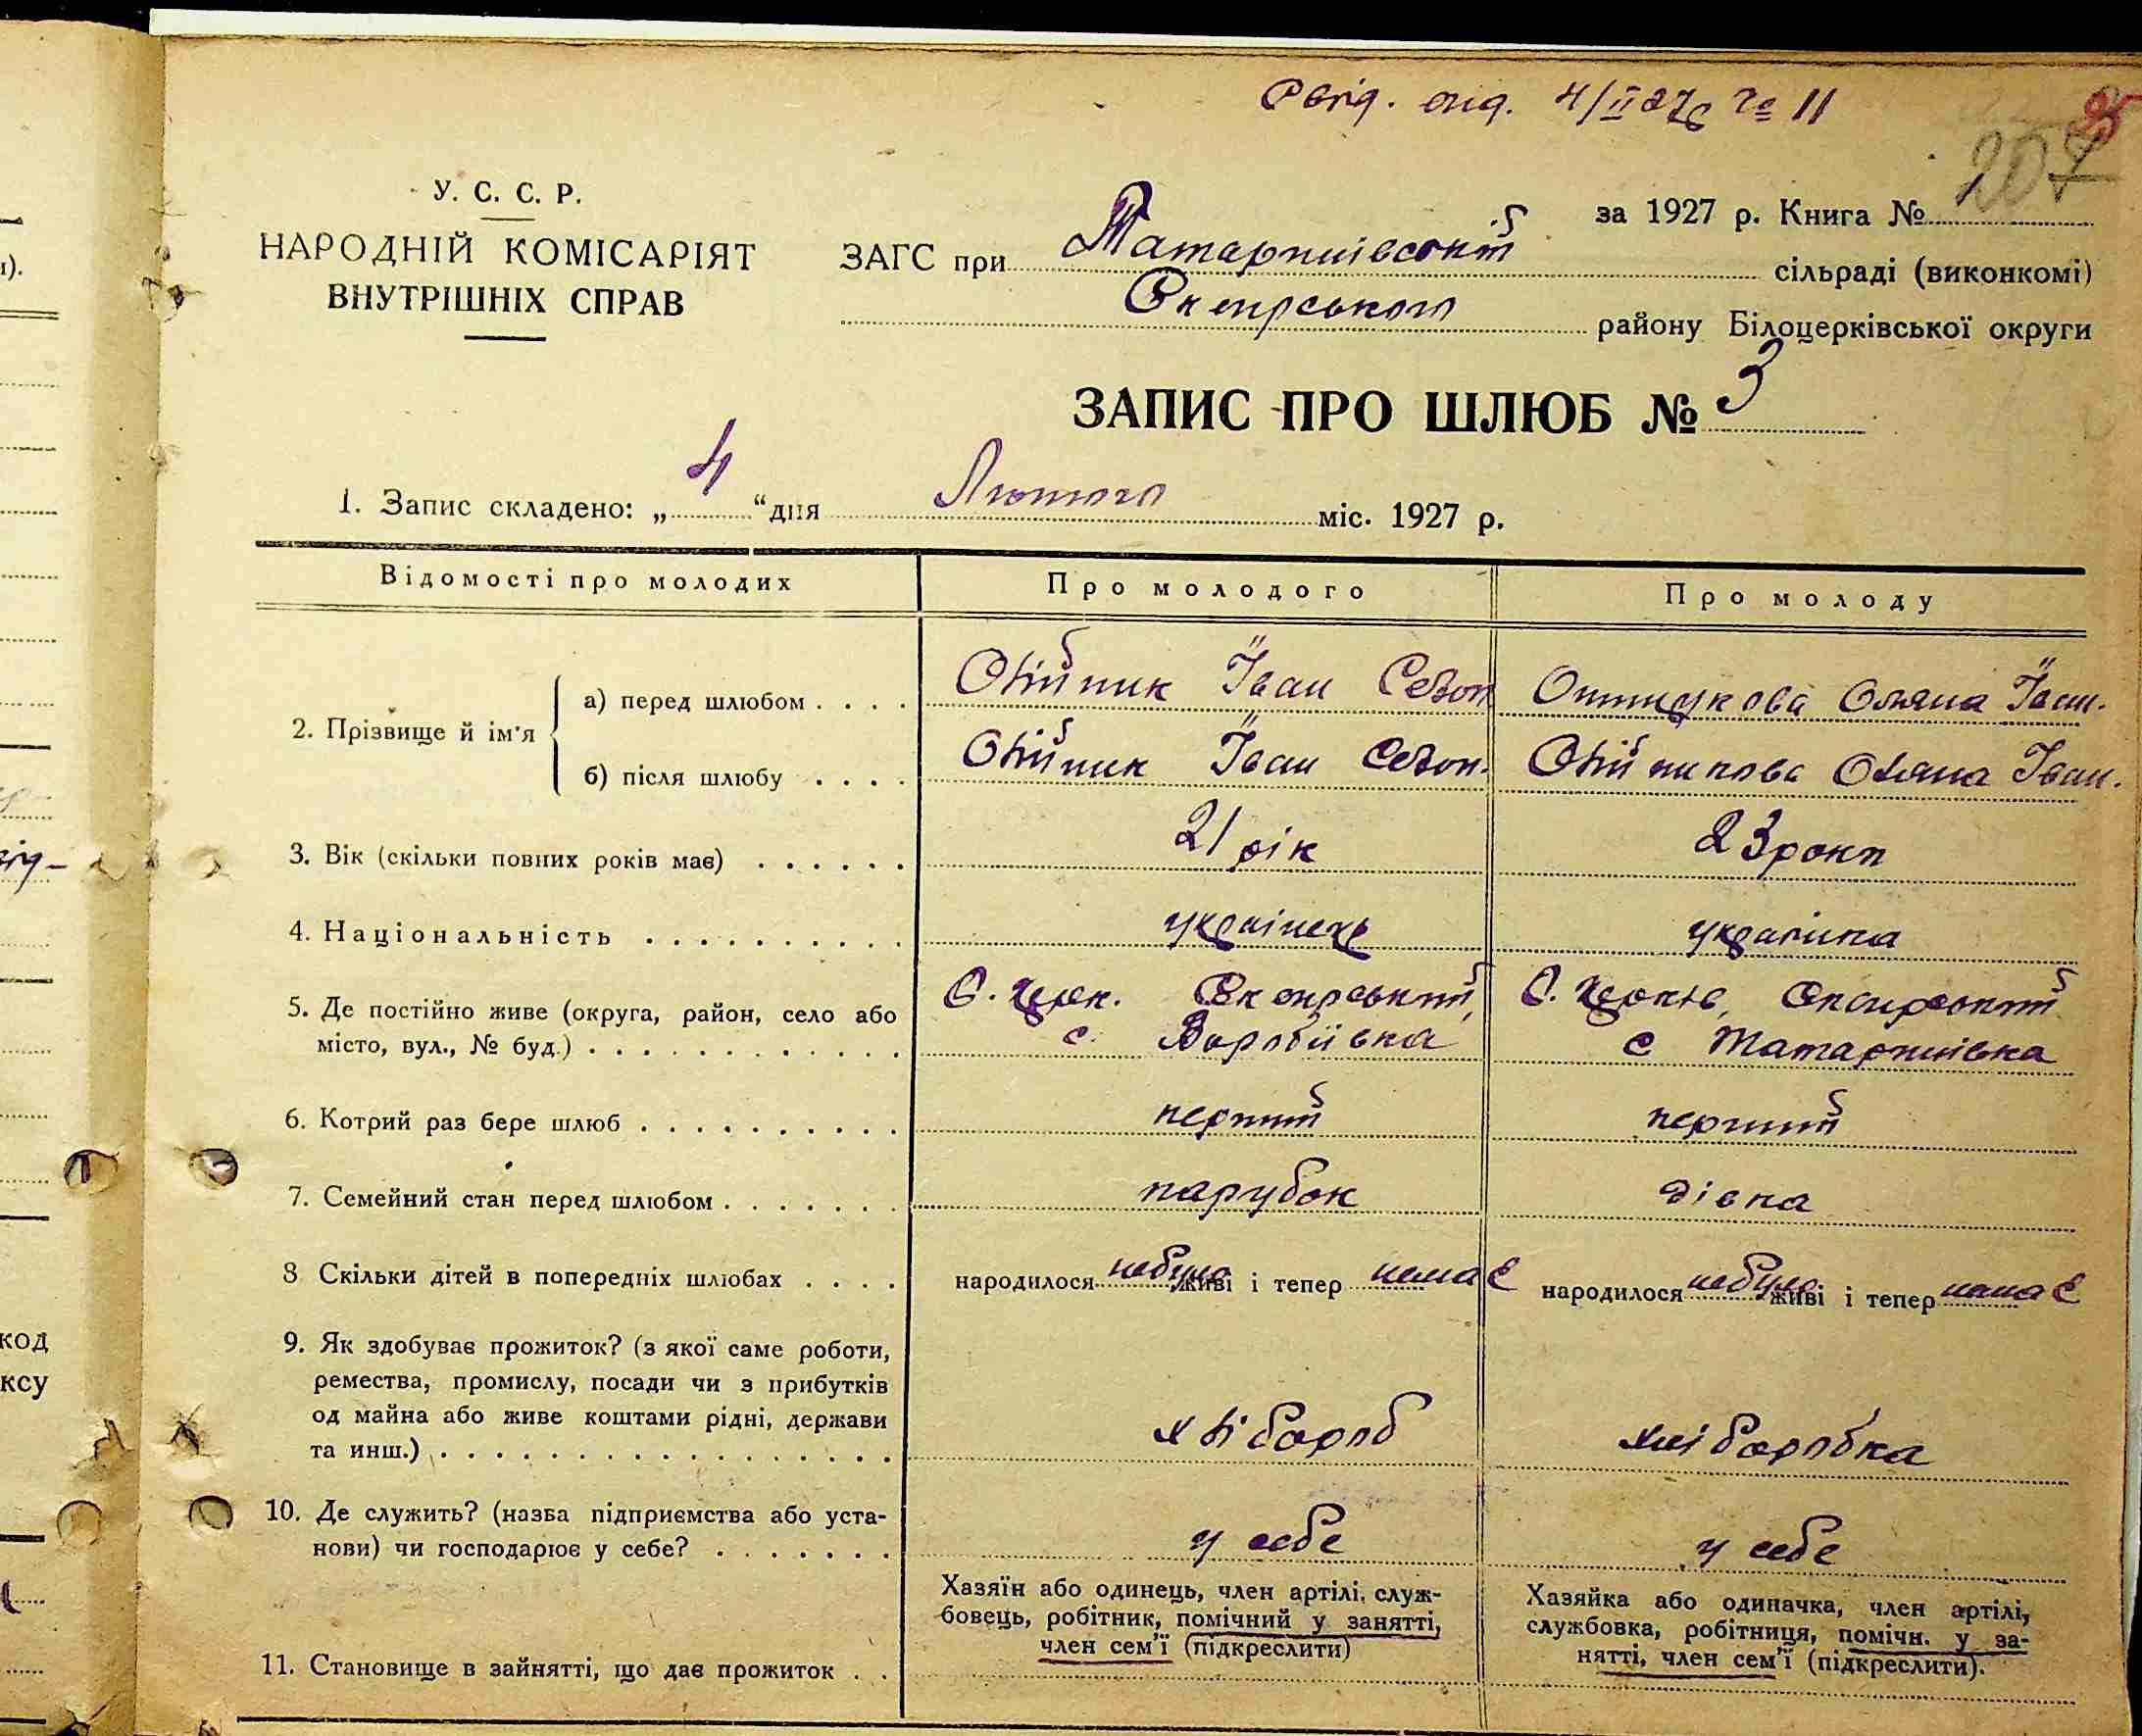 4/II 27 р № 11
207
У. С. С. Р.
НАРОДНІЙ КОМІСАРІЯТ
ВНУТРІШНІХ СПРАВ
за 1927 р. Книга №
ЗАГС при Татаринівській сільраді (виконкомі)
Сквирського району Білоцерківської округи
ЗАПИС ПРО ШЛЮБ № 3
1. Запис складено: „ 4 “ дня Лютого міс. 1927 р.
Відомості про молодих
Про молодого
Про молоду
2. Прізвище й ім'я
а) перед шлюбом . . . .
Олійник Іван
Оляна Іван.
б) після шлюбу . . . .
Олійник Іван
Олійникова Оляна Іван.
3. Вік (скільки повних років має) . . . . . .
21 рік
23 роки
4. Національність . . . . . . . . . .
українець
українка
5. Де постійно живе (округа, район, село або
місто, вул., № буд.) . . . . . . . . . . . . .
Б. Церк. Сквирський,
с. Воробіївка
Б. Церків, Сквирський
с Татаринівка
6. Котрий раз бере шлюб . . . . . . . . . .
перший
перший
7. Семейний стан перед шлюбом . . . . . . .
парубок
дівка
8 Скільки дітей в попередніх шлюбах . . . .
народилося небуло живі і тепер немає
народилося небуло живі і тепер немає
9. Як здобуває прожиток? (з якої саме роботи,
ремества, промислу, посади чи з прибутків
од майна або живе коштами рідні, держави
та инш.) . . . . . . . . . . . . . . . . .
хлібороб
хліборобка
10. Де служить? (назва підприємства або уста-
нови) чи господарює у себе? . . . . . . .
у себе
у себе
11. Становище в зайнятті, що дає прожиток . .
Хазяїн або одинець, член артілі, служ-
бовець, робітник, помічний у занятті,
член сем'ї (підкреслити)
Хазяйка або одиначка, член артілі,
службовка, робітниця, помічн. у за-
нятті, член сем'ї (підкреслити).
код
ксу